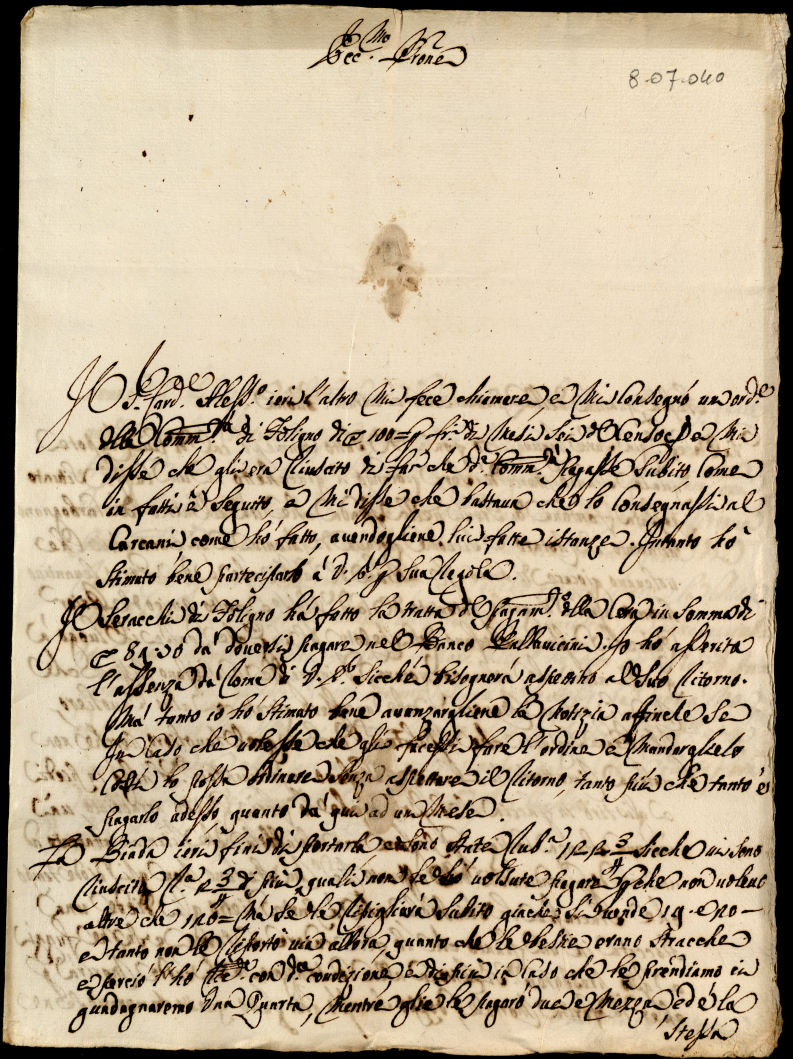 Ecc.mo Prone
8-07-040
Il S.r Card.le Aless.o ieri l'altro mi fece chiamare, e mi consegnò un ord.e
della Comm.tà di Foligno di 100= p fr. di Mesi Sei del Censo, e mi
disse che gli era riuscito di far che d.a Comm.tà pagasse subito, come
in fatti è seguito, e mi disse che bastava che lo consegnassi al
Carcani come hò fatto, avendogliene lui fatte istanze. Intanto hò
stimato bene parteciparlo à V. E. p sua regola.
Il Seracchi di Foligno hà fatto la tratta del pagam.o della Cera in somma di
da doversi pagare nel Banco Pallavicini. Io hó asserita
l'assenza da Roma di V. E. sicché bisognerá aspettino al suo ritorno.
Mà tanto io hò stimato bene avanzargliene la notizia affinche se
in caso che volesse che gli facessi fare l'ordine e mandarglielo
costì lo possa ordinare senza aspettare il ritorno, tanto più che tanto è
pagarlo adesso, quanto da quì ad un mese.
La Biada ieri finì di portarla e sono state Rub.a 122 3/4 sicche vi sono
riuscite R.a 2 3/4 di più quali non le hò volsute pagare p che non volevo
altre che 120= Mà se le ripigliará subito giache si vende 19. e 20 –
e tanto non le riportò via allora, quanto che le bestie erano stracche
e perciò l'hò con d.a condizione e di più in caso che le prendiamo ci
guadagnaremo una Quarta, mentre glie le pagaró due e mezza, ed è la
stessa